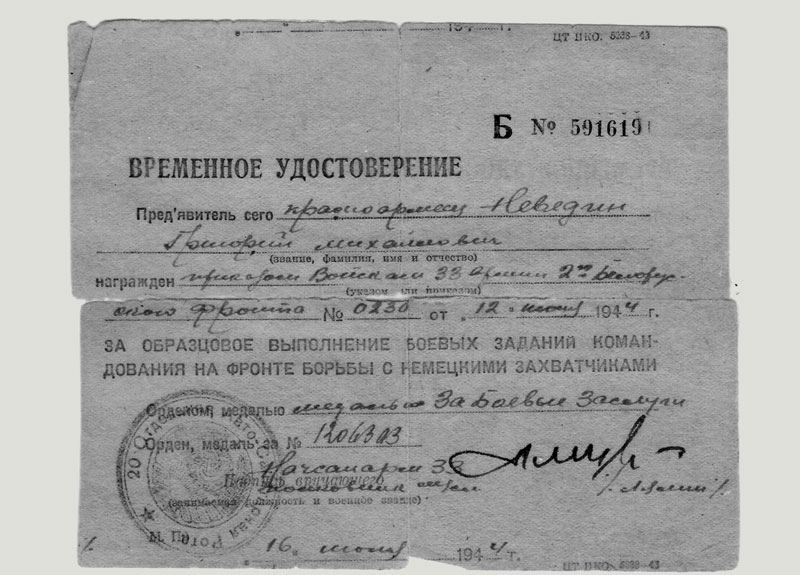 194 г.
ЦТ НКО. 5238-43
Б № 591619
ВРЕМЕННОЕ УДОСТОВЕРЕНИЕ
Пред'явитель сего красноармеец Неведгин
Григорий Михайлович
(звание, фамилия, имя и отчество)
награжден приказом Войскам 33 армии 2го Белорус-
(указом или приказом)
ского фронта № 0230 от "12" июня 1944 г.
ЗА ОБРАЗЦОВОЕ ВЫПОЛНЕНИЕ БОЕВЫХ ЗАДАНИЙ КОМАН-
ДОВАНИЯ НА ФРОНТЕ БОРЬБЫ С НЕМЕЦКИМИ ЗАХВАТЧИКАМИ
Орденом, медалью медалью За Боевые Заслуги
Орден, медаль за № 1206303
Начсанарм 33
Подпись вручающего
полковник
(занимаемая должность и военное звание)
20 Отдельная Авто-Сан Рота
М. П.
"16" июня 1944 г.
ЦТ НКО. 5238-43